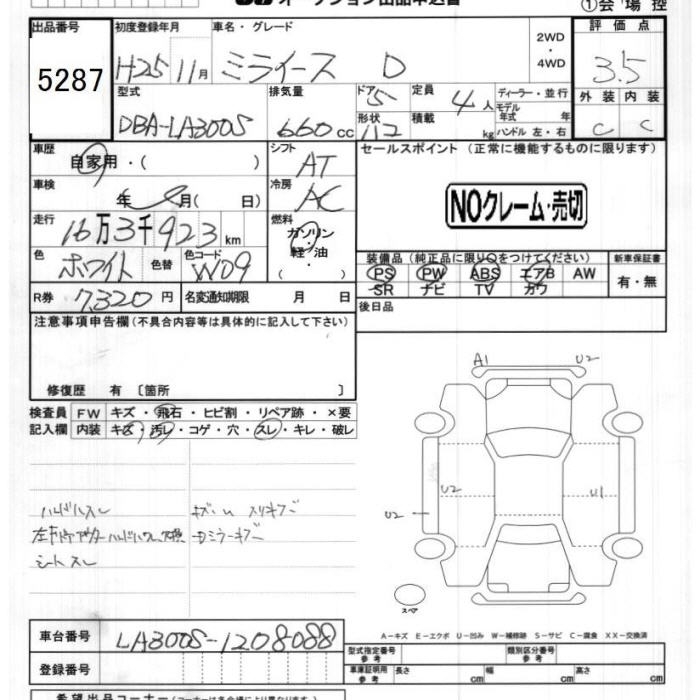 オークション出品申込書
①会場控
出品番号 5287
初度登録年月 H25 11月
車名・グレード ミライース D
2WD
・
4WD
評価点 3.5
型式 DBA-LA300S
排気量 660 cc
ドア 5
形状 112
定員 4人
積載 kg
ディーラー・並行
モデル年式 年
ハンドル 左・右
外装 内装
C C
車歴 自家用・( )
シフト AT
セールスポイント (正常に機能するものに限ります)
車検 年 月( 日)
冷房 AC
NOクレーム・売切
走行 16万3千923km
燃料 ガソリン
・
軽・油
( )
色 ホワイト 色替 色コード W09
装備品(純正品に限り○をつけてください)
新車保証書
PS PW ABS エアB AW
SR ナビ TV カワ
有・無
R券 7,320円 名変通知期限 月 日
後日品
注意事項申告欄(不具合内容等は具体的に記入して下さい)
修復歴 有 〔箇所 〕
検査員 FW キズ・飛石・ヒビ割・リペア跡・×要
記入欄 内装 キズ・汚レ・コゲ・穴・スレ・キレ・破レ
A1 U2
U2 U2 U1
ハンドルスレ
シートスレ
スペア
A－キズ E－エクボ U－凹み W－補修跡 S－サビ C－腐食 XX－交換済
車台番号 LA300S-1208088
登録番号
型式指定番号 参考
類別区分番号 参考
車庫証明用 参考 長さ cm 幅 cm 高さ cm
希望出品コーナー(コーナーは各会場により異なります)